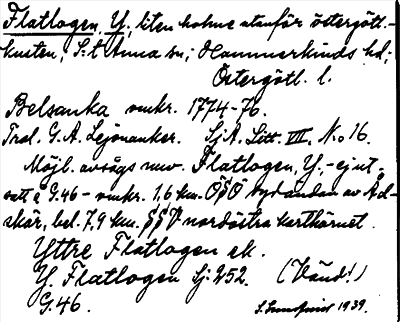 Flatlogen, Y., liten holme utanför östergötl.-
kusten, S:t Anna sn; Hammarkinds hd;
Östergötl. l.
Belsanka omkr. 1774-76.
Trol. G. A. Lejonanker. Sj.A. Litt. VII, N:o 16.
Möjl. avsågs nuv. Flatlogen, Y., - ej ut-
satt å G.46 - omkr. 1,6 km. OSO sydändan av Åd-
skär, bel. 7,9 km. SSV nordöstra karthörnet.
Yttre Flatlogen ek.
Y. Flatlogen Sj. 252. (Vänd!)
G.46. S. Lundqvist 1939.